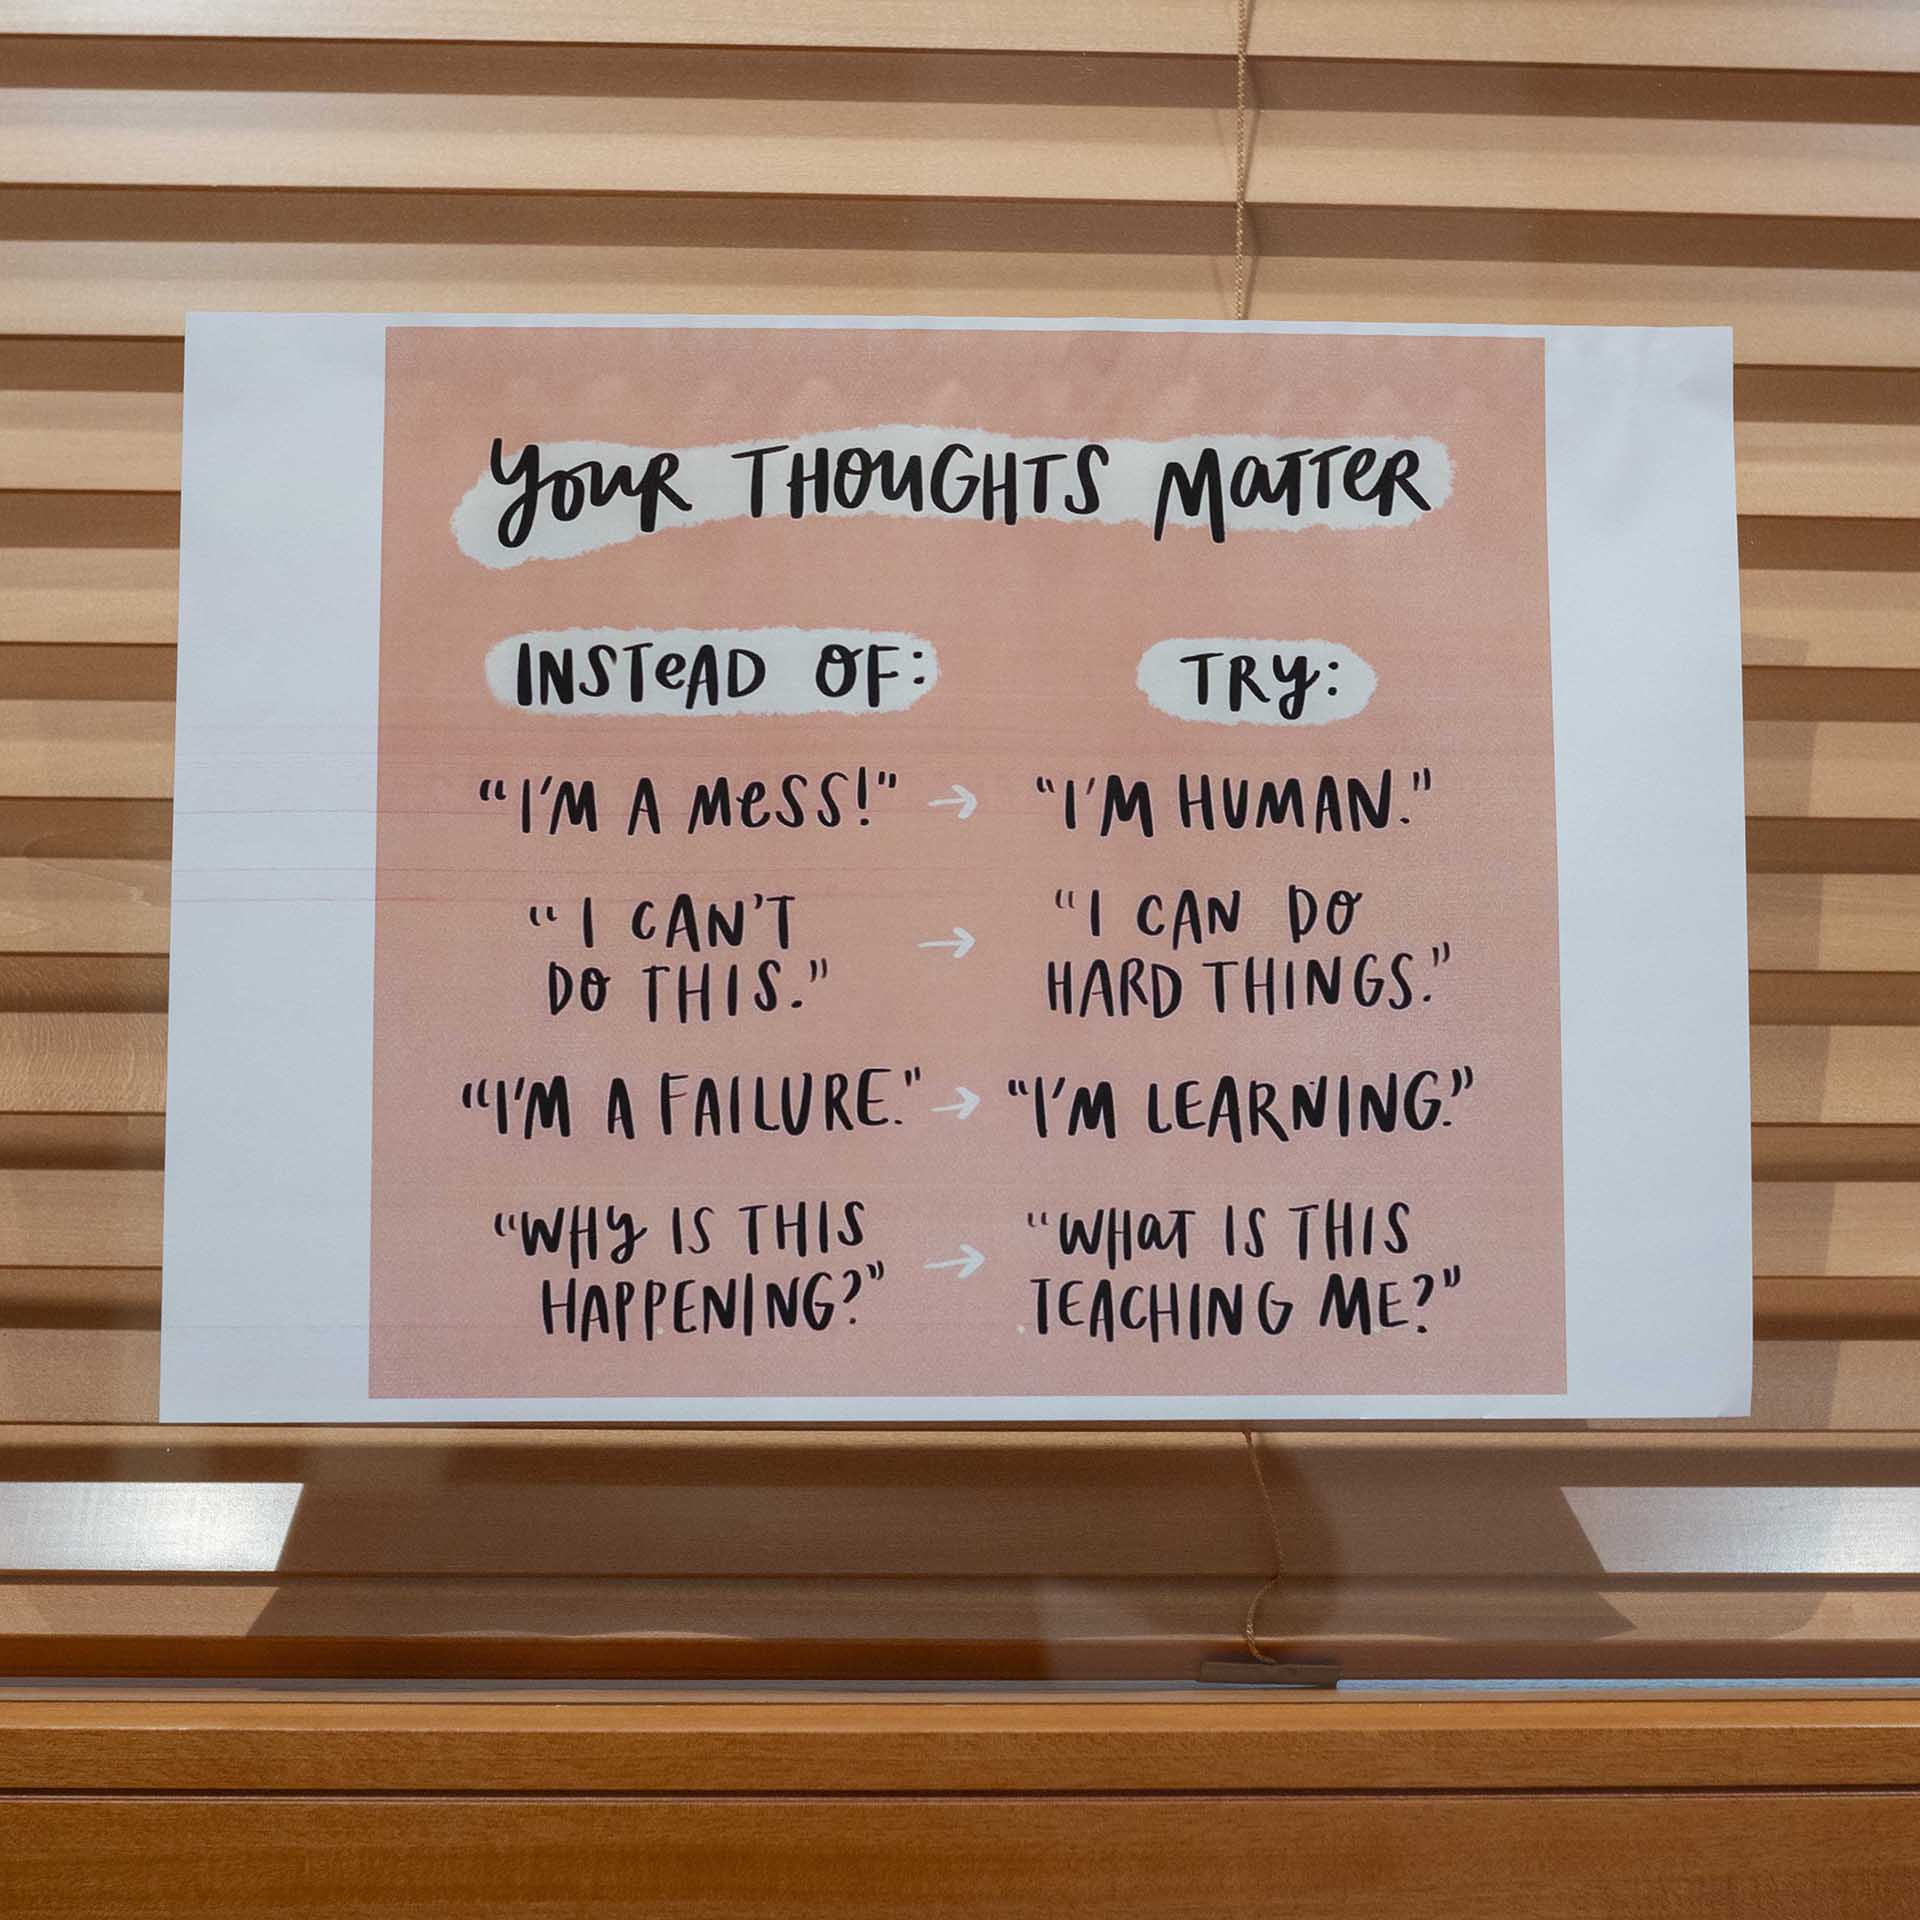 YOUR THOUGHTS MATTER
INSTEAD OF: TRY:
"I'M A MESS!" → "I'M HUMAN."
"I CAN'T
DO THIS." → "I CAN DO
HARD THINGS."
"I'M A FAILURE." → "I'M LEARNING."
"WHY IS THIS
HAPPENING?" → "WHAT IS THIS
TEACHING ME?"